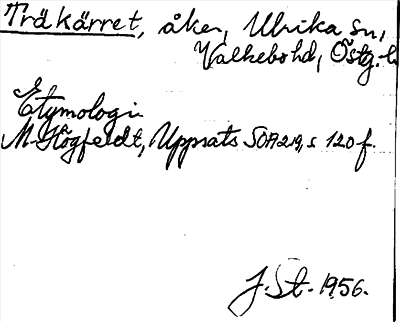 Trä kärret, åker, Ulrika sn,
Valkebo hd, Östg. l.
Etymologi
M Högfeldt, Uppsats SOA 219, s 120 f.
J. St. 1956.